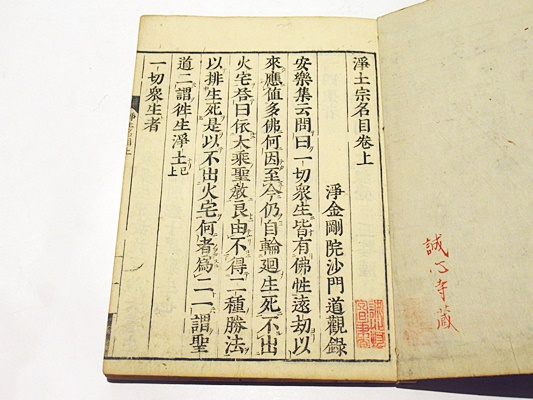 誠心寺藏
淨土宗名目卷上
淨金剛院沙門道觀錄
安樂集云問曰一切衆生皆有佛性遠劫以
來應值多佛何因至今仍自輪廻生死不出
火宅答曰依大乘聖教良由不得二種勝法
以排生死是以不出火宅何者爲二一謂聖
道二謂徃生淨土已上
一切衆生者